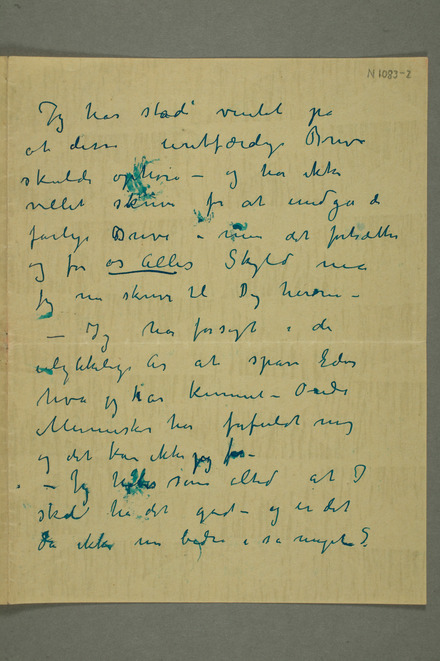 N 1083-2
Jeg har stadi ventet på
at disse uretfærdige Breve
skulde ophøre – og har ikke
villet skrive for at undgå de
farlige Breve – men det fortsætter
og for os Alles Skyld må
jeg nu skrive til Dig herom –
– Jeg har forsøgt i de
ulykkelige År at spare Eder
hva jeg har kunnet – Onde
Mennesker har forfulgt mig
og det kan ikke jeg for –
– Jeg håber som altid at I
skal ha det godt – og er det
da ikke nu bedre i så meget?